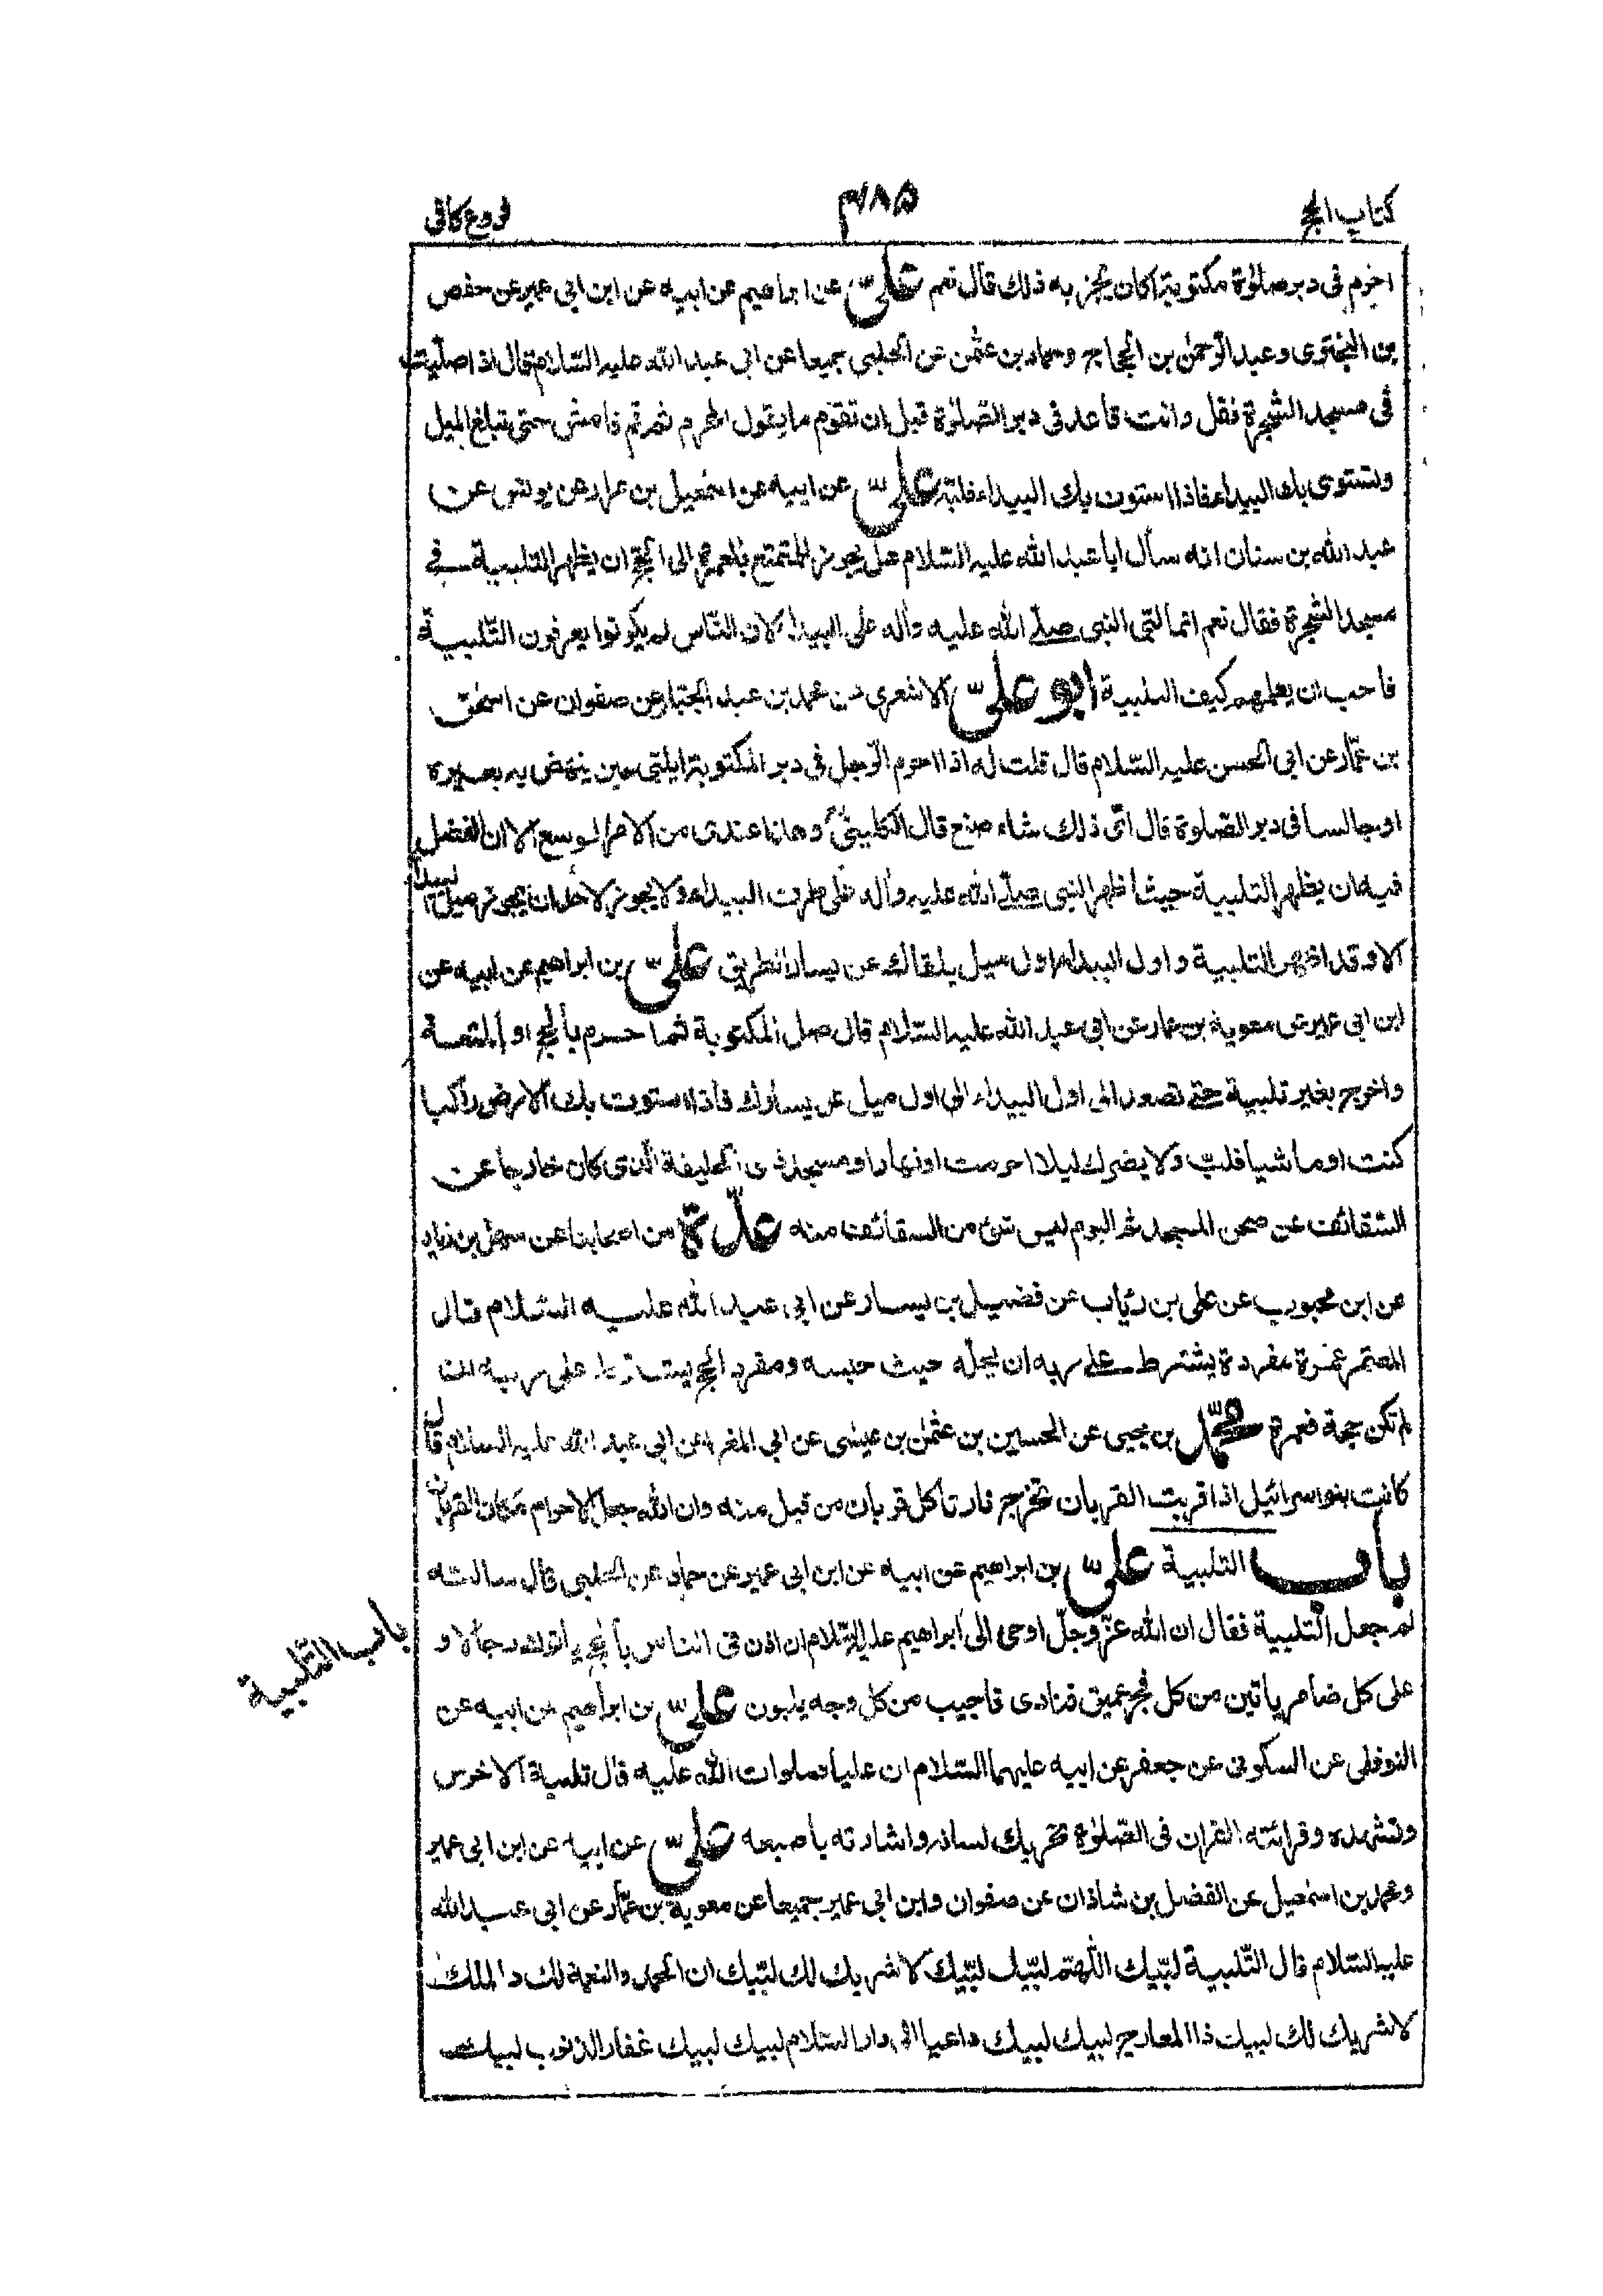 كتاب الحج
۴۸۵
فروع كافى
احرم فى دبر صلوٰة مكتوبة اكان يجزيه ذلك قال نعم علىّ عن ابراهيم عن ابيه عن ابن ابى عمير عن حفص
بن البخترى وعبد الرحمٰن بن الحجاج وحماد بن عثمٰن عن الحلبى جميعا عن ابى عبد الله عليه السّلام قال اذا صلّيت
فى مسجد الشجرة فقل وانت قاعد فى دبر الصّلوٰة قبل ان تقوم ما يقول المحرم ثم قم فامش حتى تبلغ الميل
وتستوى بك البيداء فاذا استوت بك البيداء فلبّه علىّ عن ابيه عن اسمٰعيل بن مرار عن يونس عن
عبد الله بن سنان انه سأل ابا عبد الله عليه السّلام هل يجوز للمتمتع بالعمرة الى الحج ان يظهر التلبية فى
مسجد الشجرة فقال نعم انما لبّى النبى صلّے الله عليه وآله على البيداء لان النّاس لم يكونوا يعرفون التّلبية
فاحب ان يعلمهم كيف التلبية ابو علىّ الاشعرى عن محمد بن عبد الجبّار عن صفوان عن اسحٰق
بن عمّار عن ابى الحسن عليه السّلام قال قلت له اذا احرم الرّجل فى دبر المكتوبة ايلبّى حين ينهض به بعيره
او جالسا فى دبر الصّلوة قال اىّ ذلك شاء صنع قال الكلينىؒ وهذا عندى من الامر الموسع الا ان الفضل
فيه ان يظهر التلبية حيث اظهر النبى صلّے الله عليه وآله على طرف البيداء ولا يجوز لاحد ان يجوز ميل البيداء
الا وقد اظهر التلبية واول البيداء اول ميل يلقاك عن يسار الطريق علىّ بن ابراهيم عن ابيه عن
ابن ابى عمير عن معوية بن عمار عن ابى عبد الله عليه السّلام قال صل المكتوبة ثم احرم بالحج او بالمتعة
واخرج بغير تلبية حتے تصعد الى اول البيداء الى اول ميل عن يسارك فاذا استوت بك الارض راكبا
كنت او ماشيا فلبّ ولا يضرك ليلا احرمت او نهارا ومسجد ذى الحليفة الذى كان خارجا عن
السّقائف عن صحن المسجد ثم اليوم ليس شئ من السقائف منه عدّة من اصحابنا عن سهل بن زياد
عن ابن محبوب عن على بن رئاب عن فضيل بن يسار عن ابى عبد الله عليه السّلام قال
المعتمر عمرة مفردة يشترط علے ربه ان يحلّه حيث حبسه ومفرد الحج يشترط على ربه ان
لم تكن حجة فعمرة محمّد بن يحيى عن الحسين بن عثمٰن بن عيسٰى عن ابى المغرا عن ابى عبد الله عليه السلام قال
كانت بنو اسرائيل اذا قربت القربان تخرج نار تاكل قربان من قبل منه وان الله جعل الاحرام مكان القربان
باب التلبية علىّ بن ابراهيم عن ابيه عن ابن ابى عمير عن حماد عن الحلبى قال سالته
لم جعل التّلبية فقال ان الله عزّ وجلّ اوحى الى ابراهيم عليه السّلام ان اذن فى الناس بالحج ياتوك رجالا و
على كل ضامر ياتين من كل فج عميق فنادى فاجيب من كل وجه يلبون علىّ بن ابراهيم عن ابيه عن
النوفلى عن السكونى عن جعفر عن ابيه عليهما السّلام ان عليا صلوات الله عليه قال تلبية الاخرس
وتشهده وقرائته القران فى الصّلوٰة تحريك لسانه واشارته باصبعه علىّ عن ابيه عن ابن ابى عمير
ومحمد بن اسمٰعيل عن الفضل بن شاذان عن صفوان وابن ابى عمير جميعا عن معوية بن عمّار عن ابى عبد الله
عليه السّلام قال التّلبية لبّيك اللّهمّ لبّيك لبّيك لا شريك لك لبّيك ان الحمد والنعمة لك والملك
لا شريك لك لبيك ذا المعارج لبيك لبيك داعيا الى دار السّلام لبيك لبيك غفار الذنوب لبيك
باب التّلبية